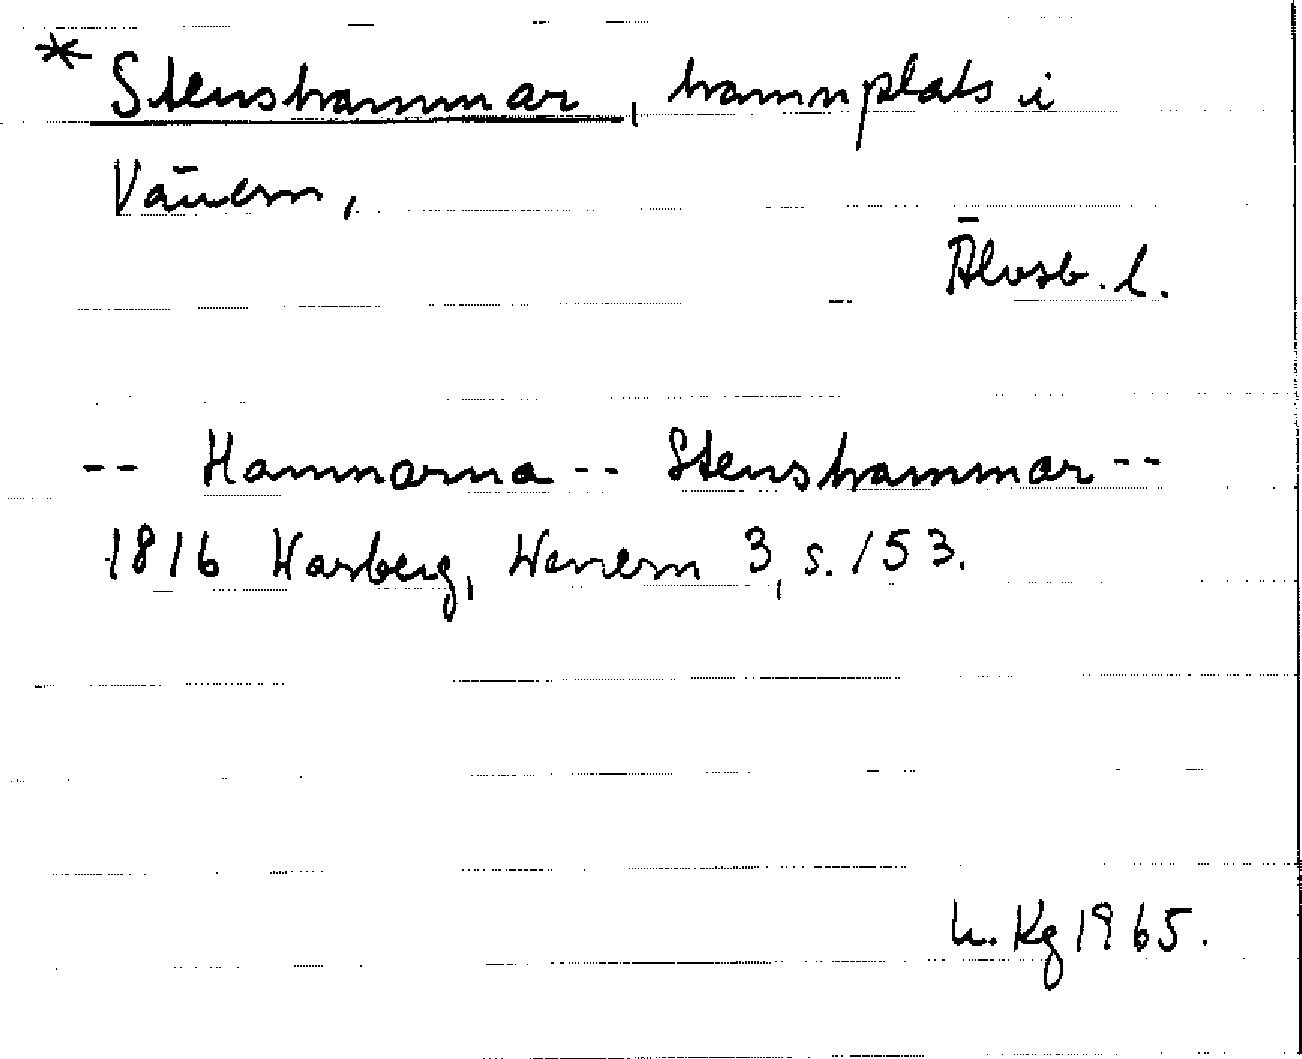 * Stenshammar, hamnplats i
Vänern,
Älvsb. l.
-- Hamnarna -- Stenshammar --
1816 Warberg, Wenern 3, s. 153.
h. Kg 1965.